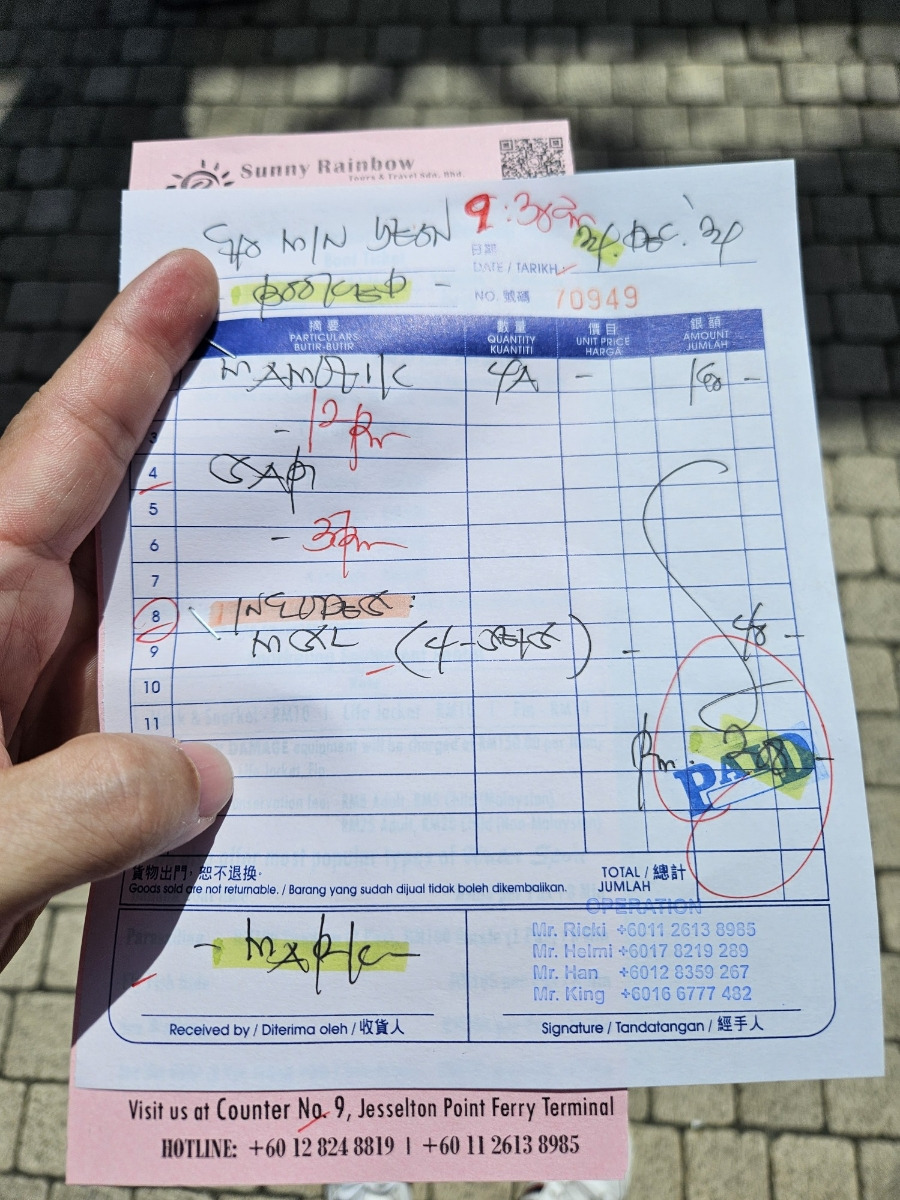 Sunny Rainbow
Tours & Travel Sdn. Bhd.
MIN 9:30am
日期
DATE / TARIKH 24. DEC. '24
- BOOKED -
NO. 號碼 70949
摘要 數量 價目 銀額
PARTICULARS QUANTITY UNIT PRICE AMOUNT
BUTIR-BUTIR KUANTITI HARGA JUMLAH
MAMUTIK 4A - 160 -
3 - 12pm
4 SAPI
5
6 - 3pm
7
8 INCLUDES:
9 (4-SETS) - 40 -
10
11
Rm. 200 -
PAID
貨物出門，恕不退換。
Goods sold are not returnable. / Barang yang sudah dijual tidak boleh dikembalikan.
TOTAL / 總計
JUMLAH
OPERATION
Mr. Ricki +6011 2613 8985
Mr. Helmi +6017 8219 289
Mr. Han +6012 8359 267
Mr. King +6016 6777 482
- MARK -
Received by / Diterima oleh / 收貨人
Signature / Tandatangan / 經手人
Visit us at Counter No. 9, Jesselton Point Ferry Terminal
HOTLINE: +60 12 824 8819 | +60 11 2613 8985